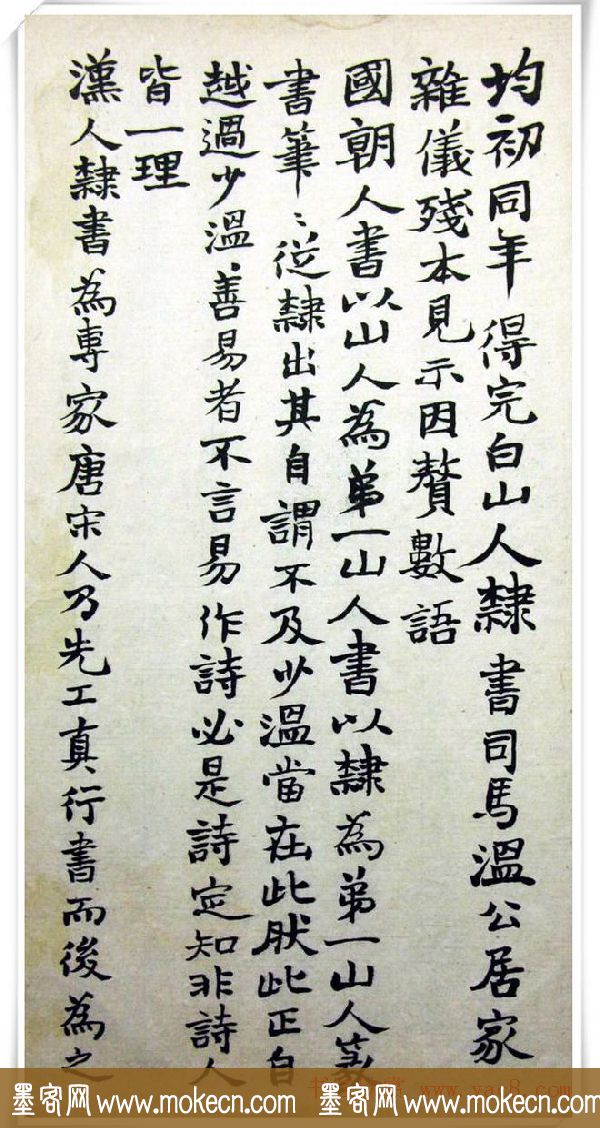 均初同年得完白山人隸書司馬溫公居家
雜儀殘本見示因贅數語
國朝人書以山人為弟一山人書以隸為弟一山人篆
書筆〻從隸出其自謂不及少溫當在此肰此正自
越過少溫善易者不言易作詩必是詩定知非詩人
皆一理
漢人隸書為專家唐宋人乃先工真行書而後為之
墨客网 www.mokecn.com 墨客网 www.mokecn.com